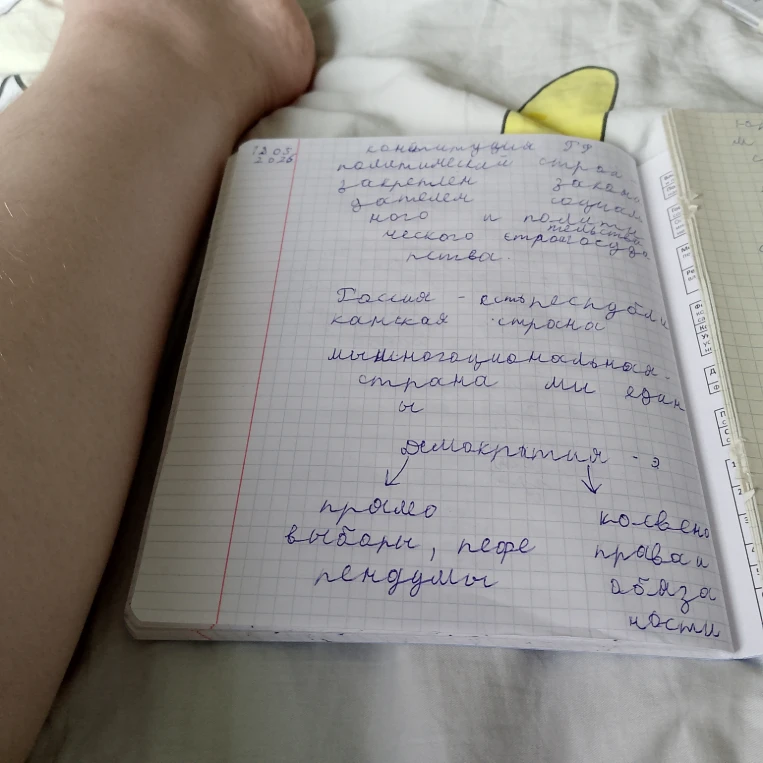 12 05
2026
конституция РФ
политический строй
закреплен законо
дателем социал
ного и полити
тельства
ческого строя госуда
рства.
Россия - есть республи
канская страна
мы многоциональная
страна ми един
ы
демократия - э
прямо
выбары, рефе
рендумы
косвено
права и
обяза
ности